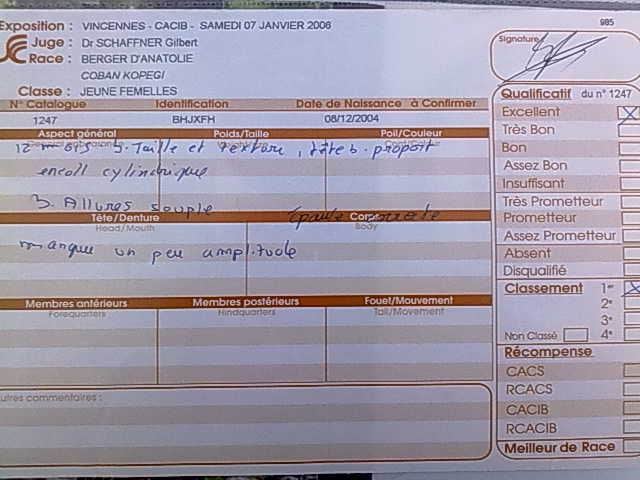 Exposition : VINCENNES - CACIB - SAMEDI 07 JANVIER 2006
985
Juge : Dr SCHAFFNER Gilbert
Race : BERGER D'ANATOLIE
COBAN KOPEGI
Classe : JEUNE FEMELLES
Signature
N° Catalogue Identification Date de Naissance à Confirmer
1247 BHJXFH 08/12/2004
Aspect général Poids/Taille Poil/Couleur
12 mois B. Taille et texture, tête b. proport
encoll cylindrique
B. Allures souple
Tête/Denture Corps
Head/Mouth Body
Epaule
manque un peu amplitude
Membres antérieurs Membres postérieurs Fouet/Mouvement
Forequarters Hindquarters Tail/Movement
autres commentaires :
Qualificatif du n° 1247
Excellent X
Très Bon
Bon
Assez Bon
Insuffisant
Très Prometteur
Prometteur
Assez Prometteur
Absent
Disqualifié
Classement 1er X
2e
3e
Non Classé 4e
Récompense
CACS
RCACS
CACIB
RCACIB
Meilleur de Race